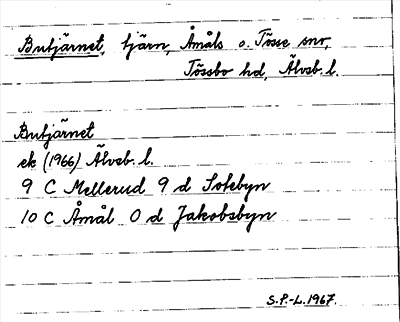 Butjärnet, tjärn, Åmåls o. Tösse snr,
Tössbo hd, Älvsb. l.
Butjärnet
ek (1966) Älvsb. l.
9 C Mellerud 9 d Sotebyn
10 C Åmål 0 d Jakobsbyn
S.P.-L. 1967.